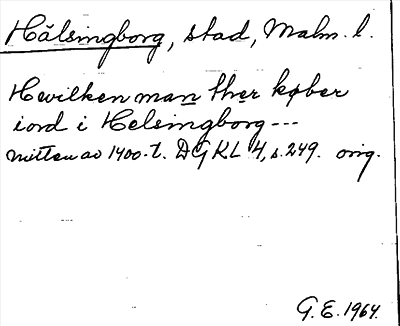 Hälsingborg, stad, Malm. l.
Hwilken man ther køber
iord i Helsingborg ---
mitten av 1400-t. DGKL 4, s. 249. orig.
G.E. 1964.